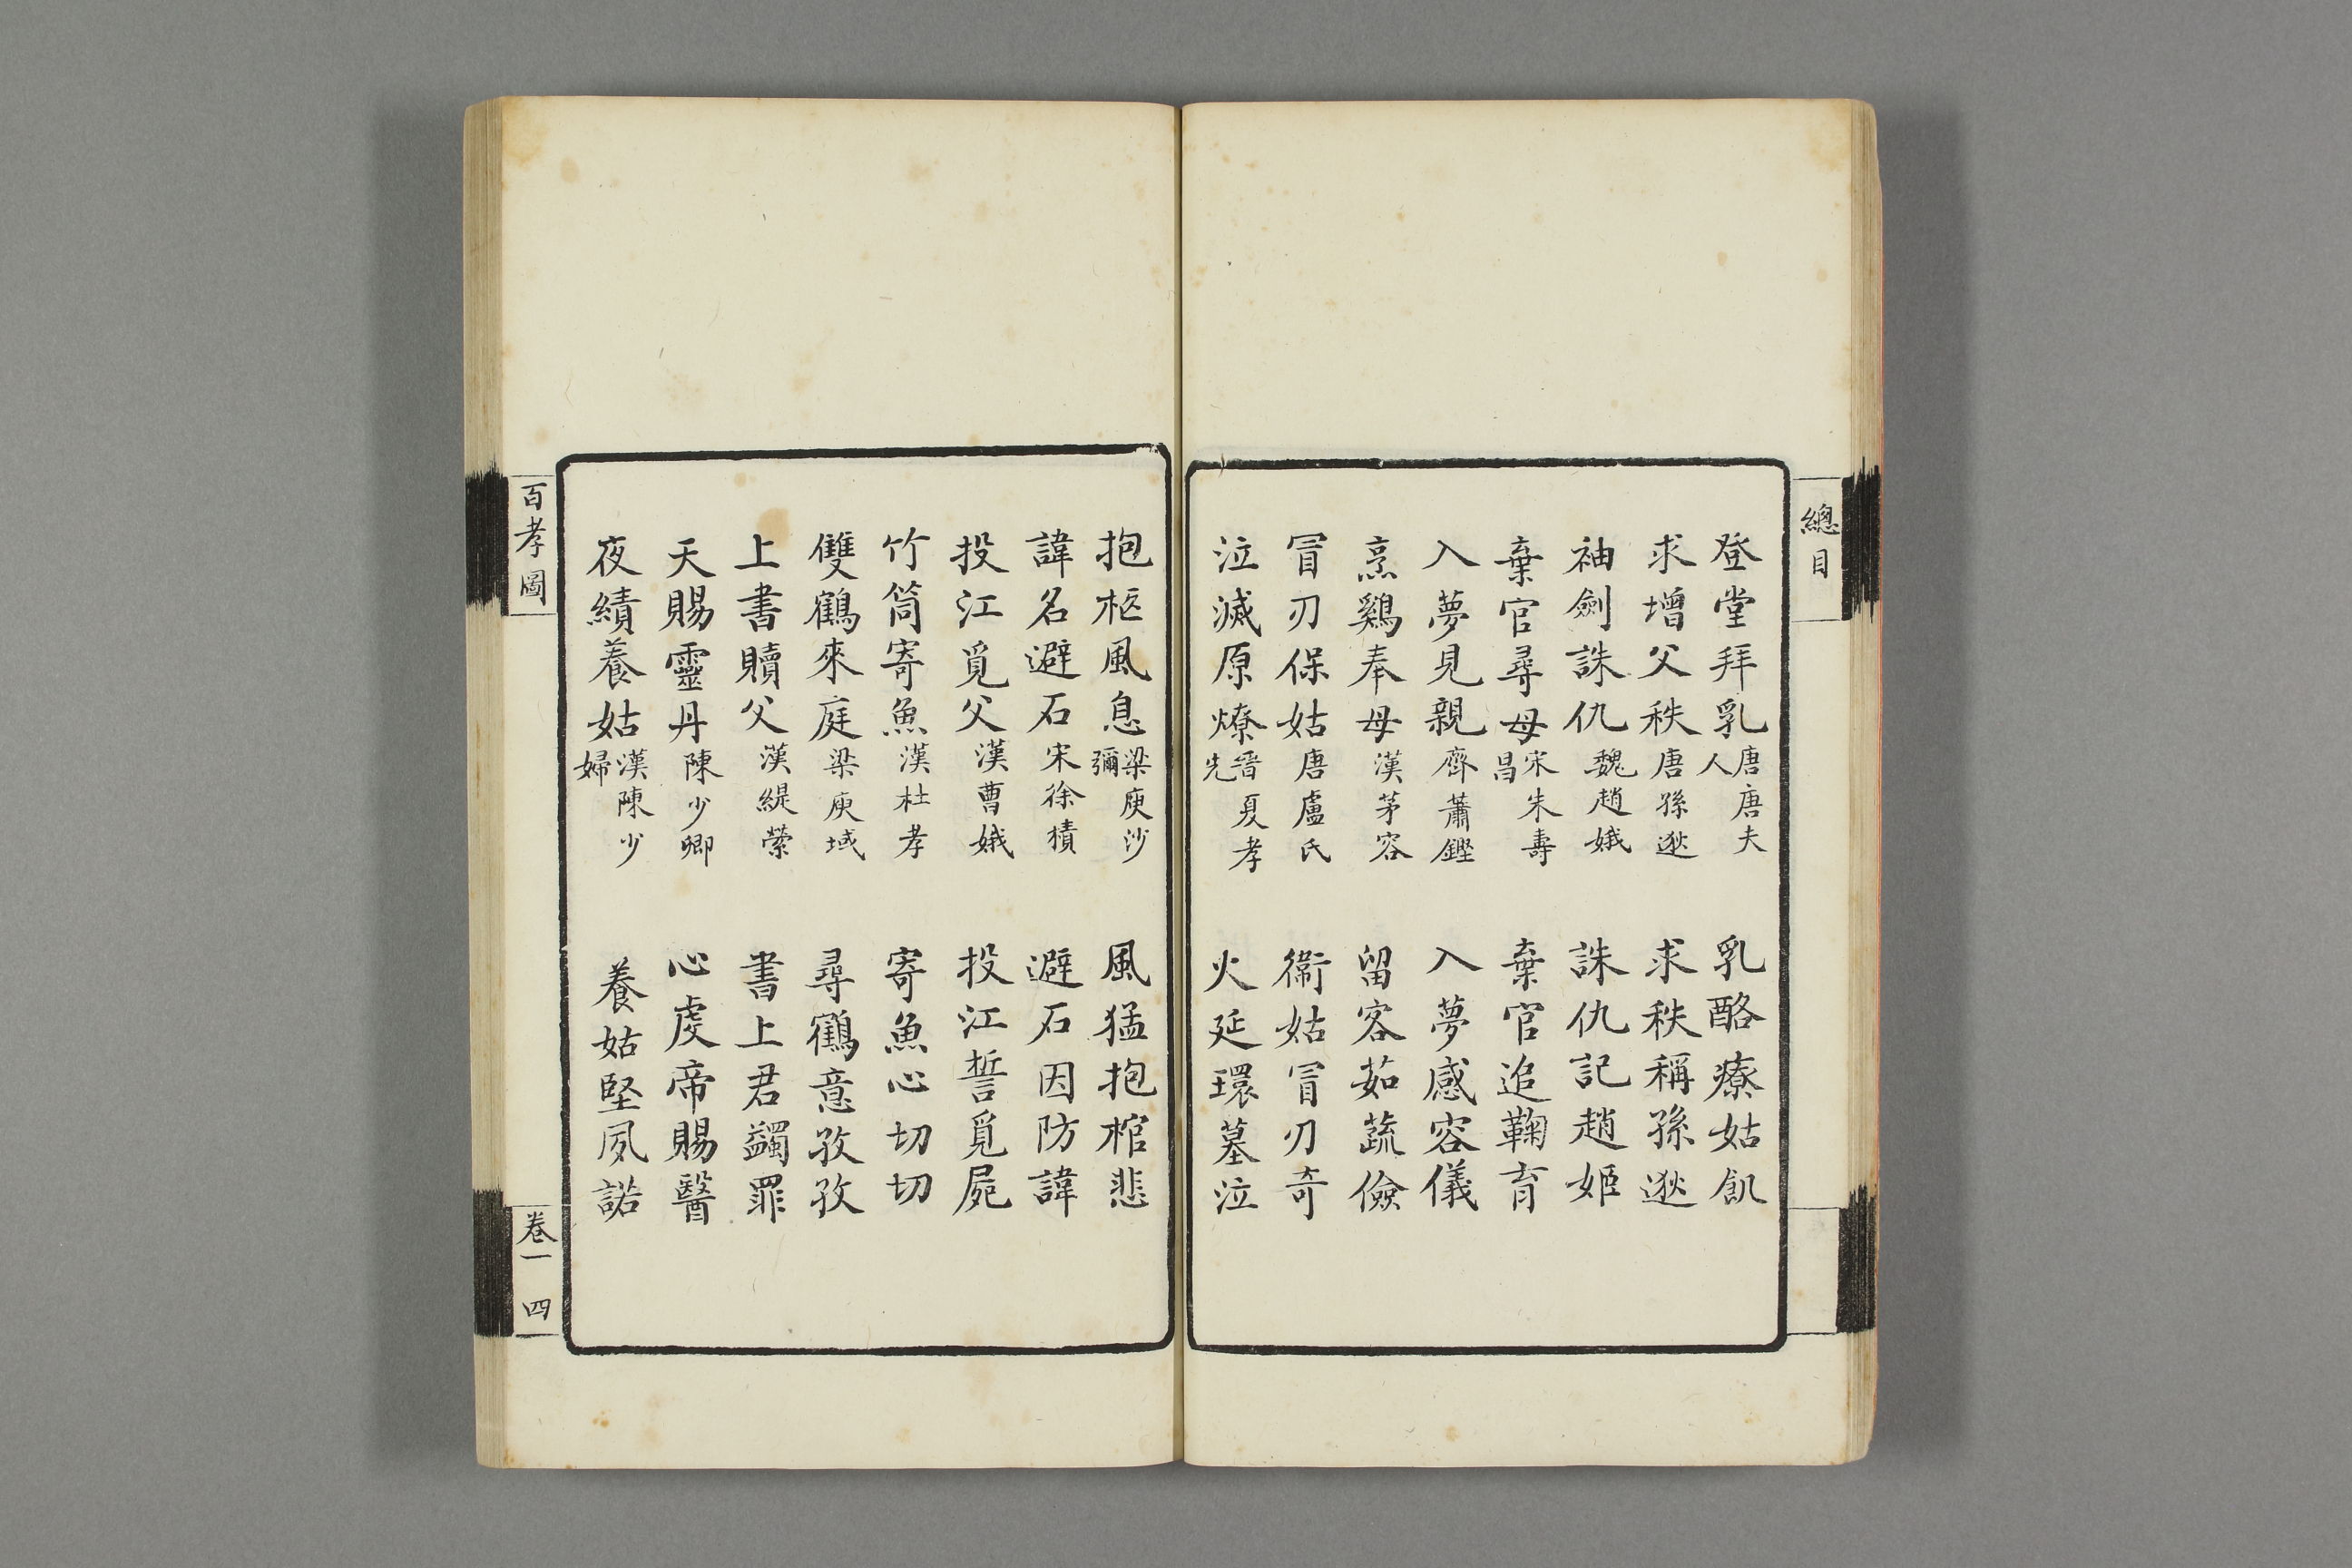 總目
登堂拜乳唐唐夫人 乳酪療姑飢
求增父秩唐孫逖 求秩稱孫逖
袖劍誅仇魏趙娥 誅仇記趙姬
棄官尋母宋朱壽昌 棄官追鞠育
入夢見親齊蕭鏗 入夢感容儀
烹鷄奉母漢茅容 留客茹蔬儉
冒刃保姑唐盧氏 衛姑冒刃奇
泣滅原燎晉夏孝先 火延環墓泣
抱柩風息梁庾沙彌 風猛抱棺悲
諱名避石宋徐積 避石因防諱
投江覓父漢曹娥 投江誓覓屍
竹筒寄魚漢杜孝 寄魚心切切
雙鶴來庭梁庾域 尋鶴意孜孜
上書贖父漢緹縈 書上君蠲罪
天賜靈丹陳少卿 心虔帝賜醫
夜績養姑漢陳少婦 養姑堅夙諾
百孝圖
卷一 四